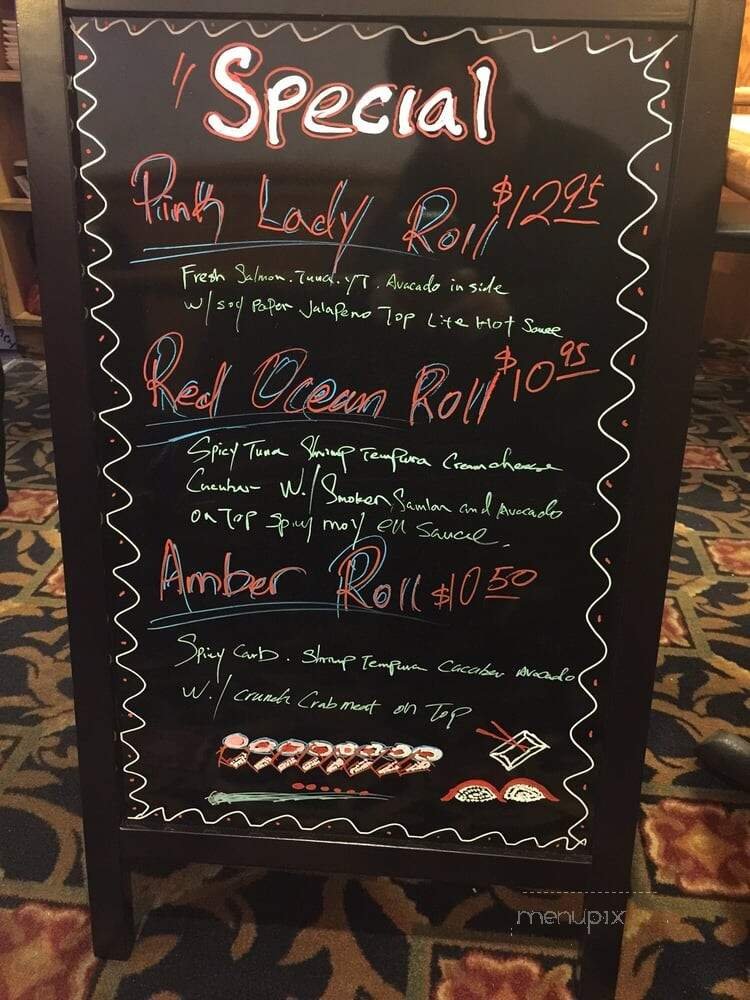 "Special
Pink Lady Roll $12.95
Fresh Salmon. Tuna. YT. Avocado inside
w/ soy Paper Jalapeno Top Lite Hot Sauce
Red Ocean Roll $10.95
Spicy Tuna Shrimp Tempura Creamcheese
W./ Smoken Samlon and Avocado
on Top Spicy moy ell Sauce.
Amber Roll $10.50
Spicy Carb. Shrimp Tempura Cacuber Avocado
W./ crunch Crabmeat on Top
menupix